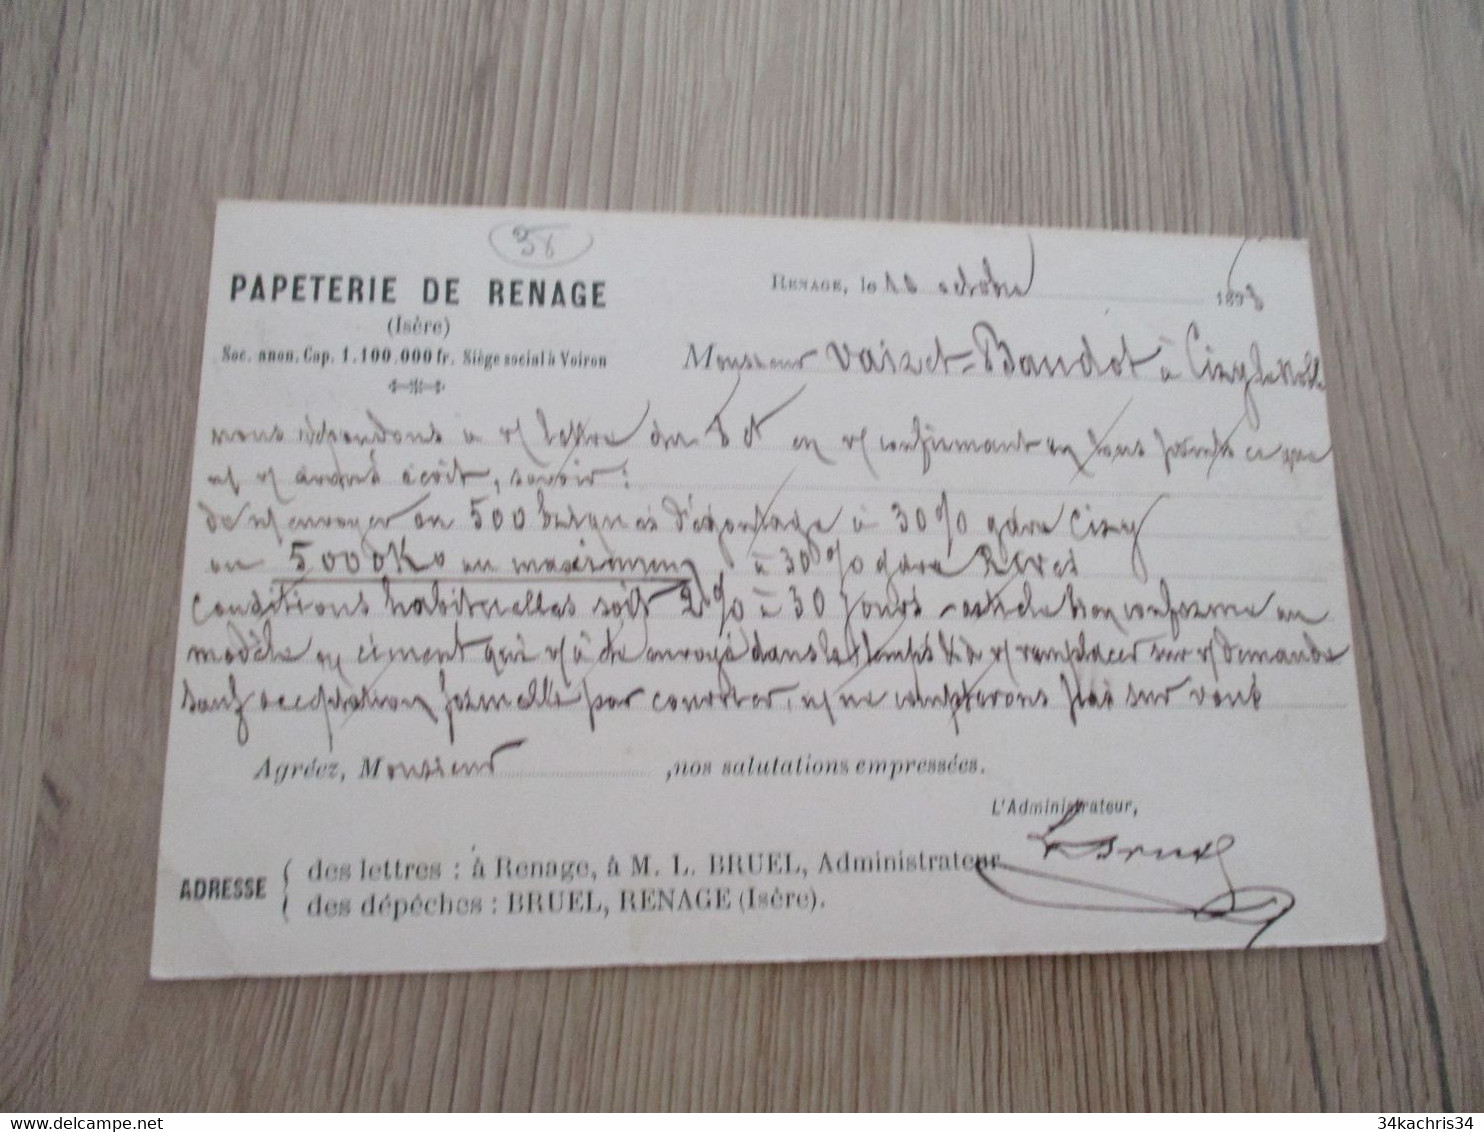 38
PAPETERIE DE RENAGE
(Isère)
Soc. anon. Cap. 1.100.000 fr. Siège social à Voiron
RENAGE, le 10 octobre 1898
Monsieur Vaizet-Baudot à Cizy le Noble
nous répondons à v/ lettre du 8 ct en v/ confirmant en tous points ce que
n/ v/ avons écrit, savoir:
de n/ envoyer ou 500 d'épontage à 30% gare Cizy
ou 5000Ko au maximum à 30% gare Rives
Conditions habituelles soit 2% à 30 jours - conforme au
modèle en ciment qui v/ a été envoyé dans le temps & à v/ remplacer sur v/ demande
sauf acceptation formelle par courrier, n/ ne compterons pas sur vous
Agréez, Monsieur, nos salutations empressées.
L'Administrateur,
L Bruel
ADRESSE
des lettres : à Renage, à M. L. BRUEL, Administrateur
des dépêches : BRUEL, RENAGE (Isère).
34kachris34